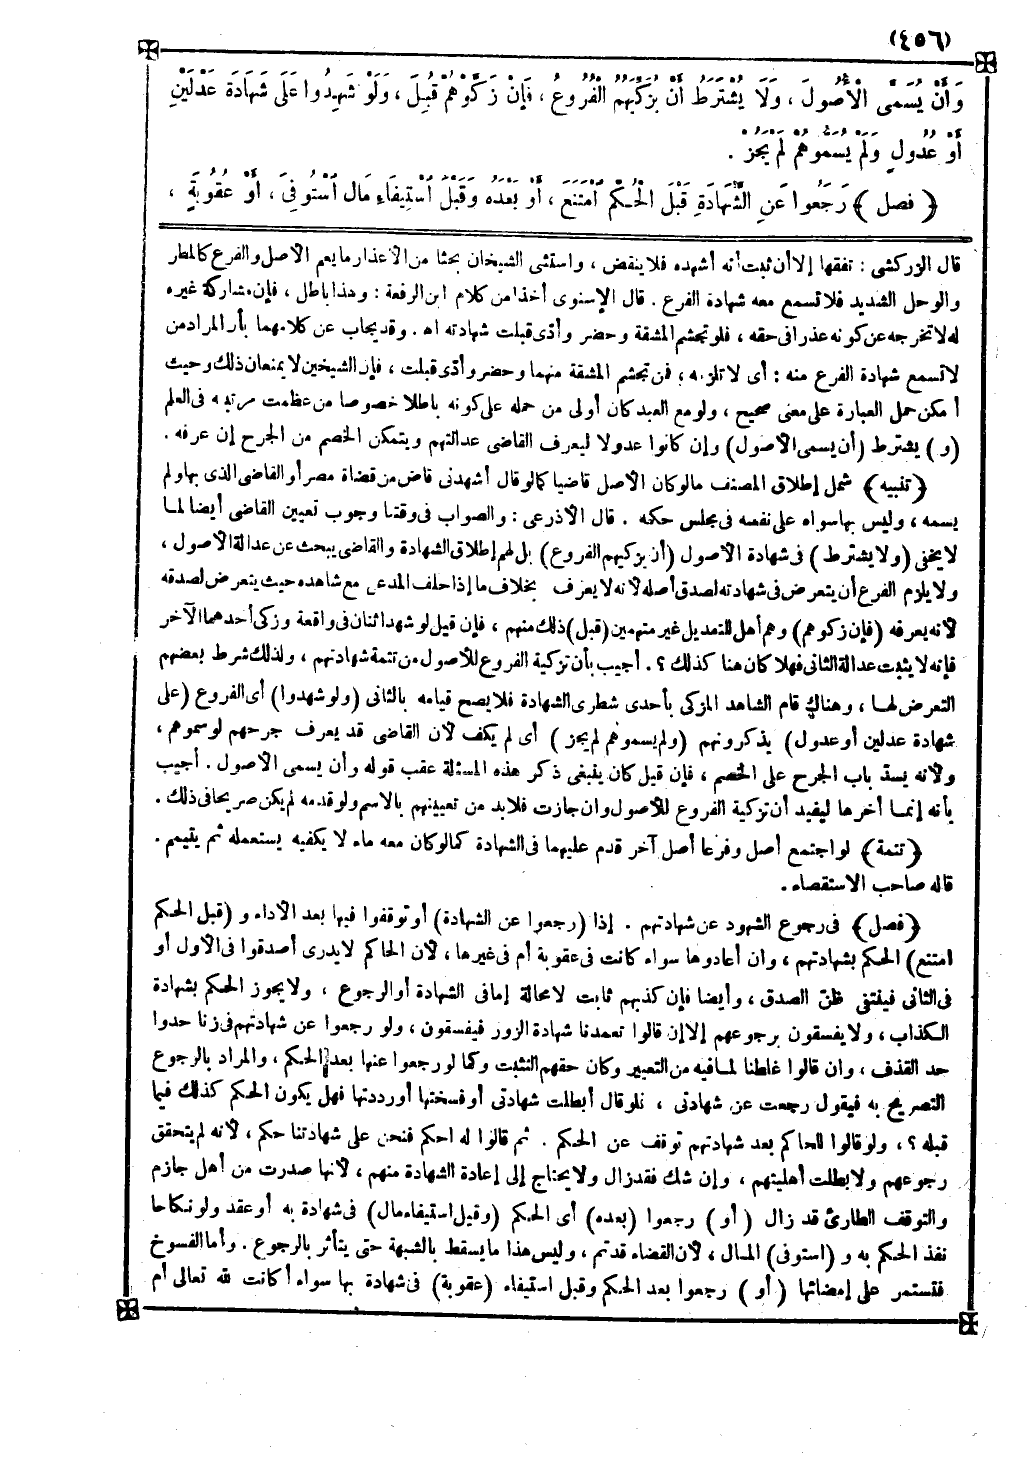 (٤٥٦)
وَأَنْ يُسَمِّيَ الْأُصُولَ ، وَلَا يُشْتَرَطُ أَنْ يُزَكِّيَهُمُ الْفُرُوعُ ، فَإِنْ زَكَّوْهُمْ قُبِلَ ، وَلَوْ شَهِدُوا عَلَى شَهَادَةِ عَدْلَيْنِ
أَوْ عُدُولٍ وَلَمْ يُسَمُّوهُمْ لَمْ يَجُزْ .
﴿ فصل ﴾ رَجَعُوا عَنِ الشَّهَادَةِ قَبْلَ الْحُكْمِ امْتَنَعَ ، أَوْ بَعْدَهُ وَقَبْلَ اسْتِيفَاءِ مَالٍ اسْتُوفِيَ ، أَوْ عُقُوبَةٍ ،
قال الزركشى : تفقها إلا أن ثبت أنه أشهده فلا ينقض ، واستثنى الشيخان بحثا من الأعذار ما يعم الأصل والفرع كالمطر
والوحل الشديد فلا تسمع معه شهادة الفرع . قال الإسنوى أخذا من كلام ابن الرفعة : وهذا باطل ، فإن مشاركة غيره
له لا تخرجه عن كونه عذرا فى حقه ، فلو تجشم المشقة وحضر وأدّى قبلت شهادته اه . وقد يجاب عن كلامهما بأن المراد من
لا تسمع شهادة الفرع منه : أى لا تلزمه ، فمن تجشم المشقة منهما وحضر وأدّى قبلت ، فإن الشيخين لا يمنعان ذلك وحيث
أمكن حمل العبارة على معنى صحيح ، ولو مع العبد كان أولى من حمله على كونه باطلا خصوصا من عظمت مرتبته فى العلم
(و) يشترط (أن يسمى الأصول) وإن كانوا عدولا ليعرف القاضى عدالتهم ويتمكن الخصم من الجرح إن عرفه .
﴿ تنبيه ﴾ شمل إطلاق المصنف ما لو كان الأصل قاضيا كما لو قال أشهدنى قاض من قضاة مصر أو القاضى الذى بها ولم
يسمه ، وليس بها سواه على نفسه فى مجلس حكمه . قال الأذرعى : والصواب فى وقتنا وجوب تعيين القاضى أيضا لمـا
لا يخفى (ولا يشترط) فى شهادة الأصول (أن يزكيهم الفروع) بل لهم إطلاق الشهادة والقاضى يبحث عن عدالة الأصول ،
ولا يلزم الفرع أن يتعرض فى شهادته لصدق أصله لأنه لا يعرف بخلاف ما إذا حلف المدعى مع شاهده حيث يتعرض لصدقه
لأنه يعرفه (فإن زكوهم) وهم أهل للتعديل غير متهمين (قبل) ذلك منهم ، فإن قيل لو شهد اثنان فى واقعة وزكى أحدهما الآخر
فإنه لا يثبت عدالة الثانى فهلا كان هنا كذلك ؟ . أجيب بأن تزكية الفروع للأصول من تتمة شهادتهم ، ولذلك شرط بعضهم
التعرض لهـا ، وهناك قام الشاهد المزكى بأحدى شطرى الشهادة فلا يصح قيامه بالثانى (ولو شهدوا) أى الفروع (على
شهادة عدلين أو عدول) يذكرونهم (ولم يسموهم لم يجز) أى لم يكف لأن القاضى قد يعرف جرحهم لو سموهم ،
ولأنه يسدّ باب الجرح على الخصم ، فإن قيل كان ينبغى ذكر هذه المسئلة عقب قوله وأن يسمى الأصول . أجيب
بأنه إنمـا أخرها ليفيد أن تزكية الفروع للأصول وان جازت فلابد من تعيينهم بالاسم ولو قدمه لم يكن صريحا فى ذلك .
﴿ تتمة ﴾ لو اجتمع أصل وفرعا أصل آخر قدم عليهما فى الشهادة كما لو كان معه ماء لا يكفيه يستعمله ثم يتيمم .
قاله صاحب الاستقصاء .
﴿ فصل ﴾ فى رجوع الشهود عن شهادتهم . إذا (رجعوا عن الشهادة) أو توقفوا فيها بعد الأداء و (قبل الحكم
امتنع) الحكم بشهادتهم ، وان أعادوها سواء كانت فى عقوبة أم فى غيرها ، لأن الحاكم لا يدرى أصدقوا فى الأول أو
فى الثانى فينتفى ظنّ الصدق ، وأيضا فإن كذبهم ثابت لا محالة إما فى الشهادة أو الرجوع ، ولا يجوز الحكم بشهادة
الكذاب ، ولا يفسقون برجوعهم إلا إن قالوا تعمدنا شهادة الزور فيفسقون ، ولو رجعوا عن شهادتهم فى زنا حدوا
حد القذف ، وان قالوا غلطنا لمـا فيه من التعيير وكان حقهم التثبت وكما لو رجعوا عنها بعد الحكم ، والمراد بالرجوع
التصريح به فيقول رجعت عن شهادتى ، فلو قال أبطلت شهادتى أو فسختها أو رددتها فهل يكون الحكم كذلك فيما
قبله ؟ ، ولو قالوا للحاكم بعد شهادتهم توقف عن الحكم . ثم قالوا له احكم فنحن على شهادتنا حكم ، لأنه لم يتحقق
رجوعهم ولا بطلت أهليتهم ، وإن شك فقد زال ولا يحتاج إلى إعادة الشهادة منهم ، لأنها صدرت من أهل جازم
والتوقف الطارئ قد زال ( أو ) رجعوا (بعده) أى الحكم (وقبل استيفاء مال) فى شهادة به أو عقد ولو نكاحا
نفذ الحكم به و (استوفى) المـال ، لأن القضاء قد تم ، وليس هذا ما يسقط بالشبهة حتى يتأثر بالرجوع . وأما الفسوخ
فتستمر على إمضائها ( أو ) رجعوا بعد الحكم وقبل استيفاء (عقوبة) فى شهادة بها سواء أكانت لله تعالى أم